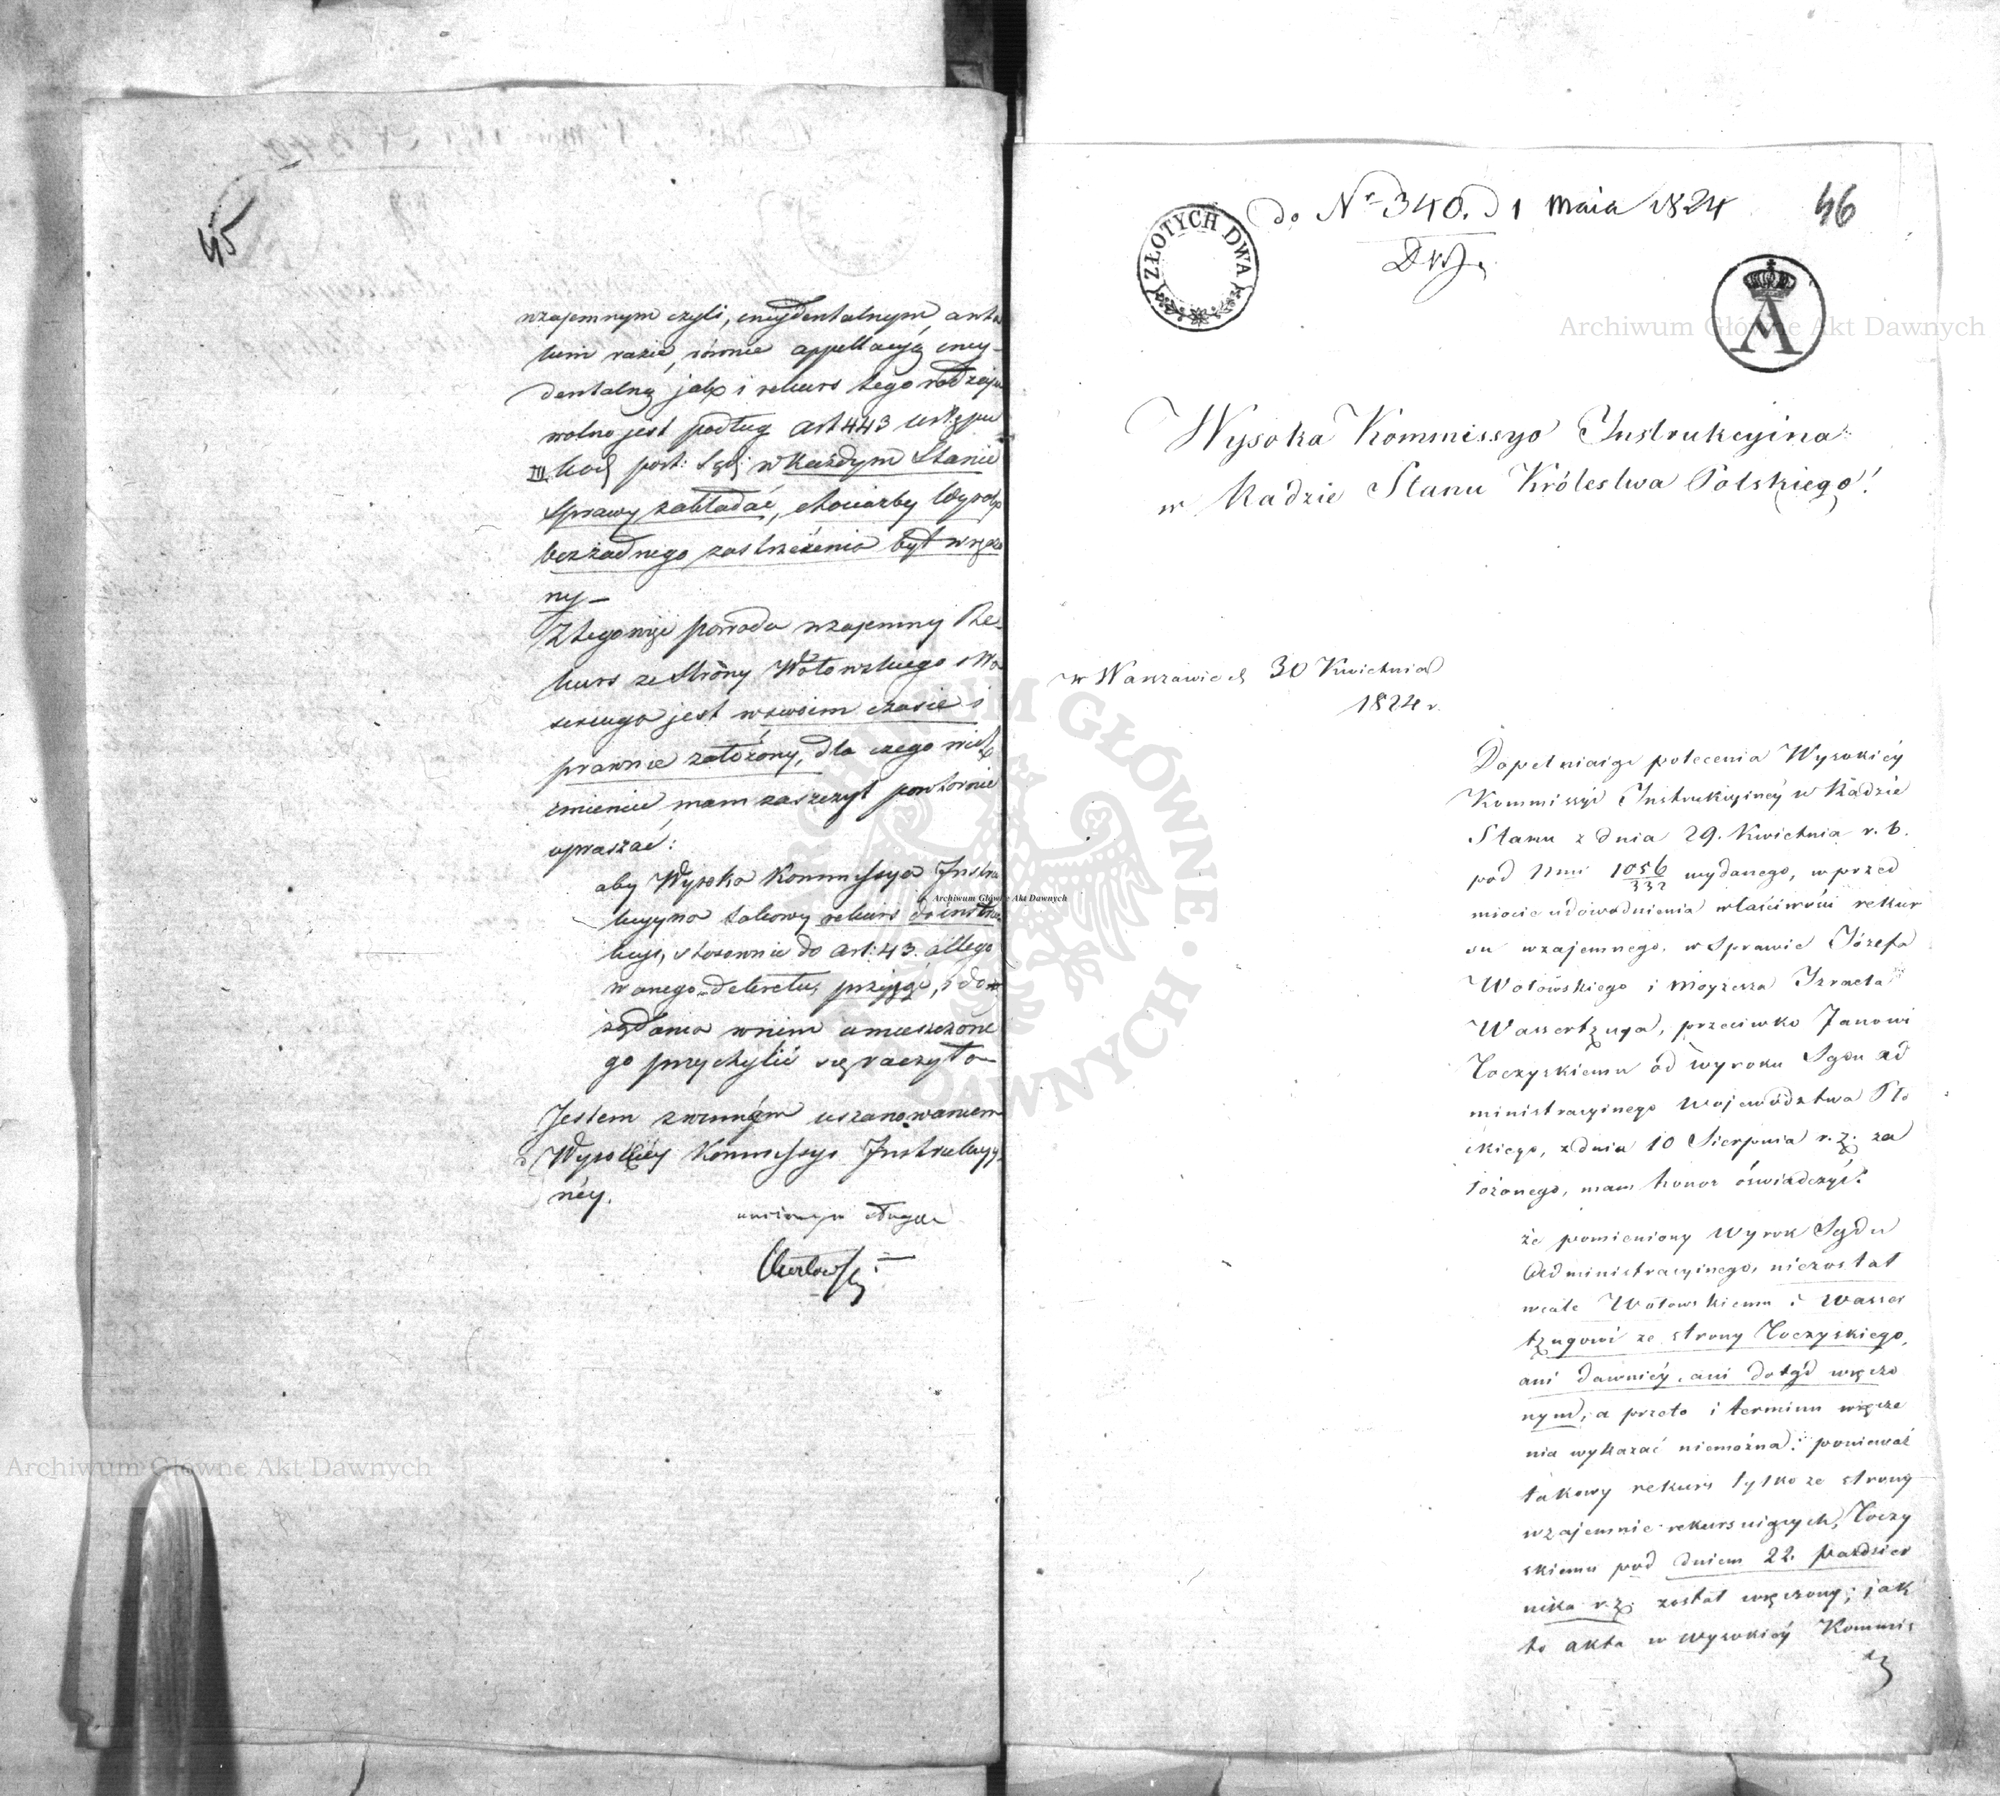 45
wzajemnym czyli, incydentalnym, a w ta
kim razie, równie appellacyą incy-
dentalną jak i rekurs tego rodzaju
wolno jest podług art 443 ustępu
III kod. post: Sąd: w każdym Stanie
Sprawy zakładać, chociażby Wyrok
bez żadnego zastrzeżenia był wręczo
ny —
Z tego więc powodu wzajemny Re-
kurs ze Strony Wołowskiego i Wa
sercuga jest w swoim czasie i
prawnie założony, dla czego
imieniu mam zaszczyt powtornie
upraszać:
aby Wysoka Kommissya Instru
kcyjna takowy rekurs do instru
kcyi, stosownie do art: 43. allego
wanego dekretu, przyjąć, i do
żądania w nim umieszczone
go przychylić się raczyła —
Jestem z winnym uszanowaniem
Wysokiéy Kommissyi Instrukcyy-
néy.
uniżonym sługą
do Nr 340. d 1 Maia 1824
46
ZŁOTYCH DWA
A
Wysoka Kommissyo Instrukcyina
w Radzie Stanu Królestwa Polskiego!
w Warszawie d. 30 Kwietnia
1824 r.
Dopełniaiąc polecenia Wysokiéy
Kommissyi Instrukcyinéy w Radzie
Stanu z dnia 29. Kwietnia r. b.
pod Nrmi 1056/332 wydanego, w przed
miocie udowodnienia właściwości rekur
su wzajemnego, w Sprawie Józefa
Wołowskiego i Moyżesza Izraela
Wassertzuga, przeciwko Janowi
Łoczyskiemu od Wyroku Sądu ad
ministracyinego Województwa Pło
ckiego, z dnia 10 Sierpnia r. z. za
łożonego, mam honor oświadczyć:
że pomieniony Wyrok Sądu
Administracyinego, niezostał
wcale Wołowskiemu i Wasser
tzugowi ze strony Łoczyskiego,
ani dawniéy, ani dotąd wręczo
nym, a przeto i terminu wręcze
nia wykazać niemożna: ponieważ
takowy rekurs tylko ze strony
wzajemnie rekursuiących, Łoczy
skiemu pod dniem 22. Pazdzier
nika r. z. został wręczony; jak
to akta w Wysokiéy Kommis